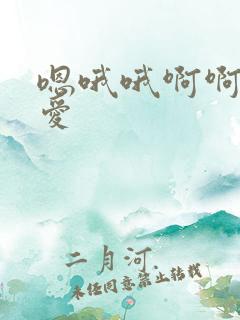 嗯哦哦啊啊
愛
二月河.
未经同意禁止转载